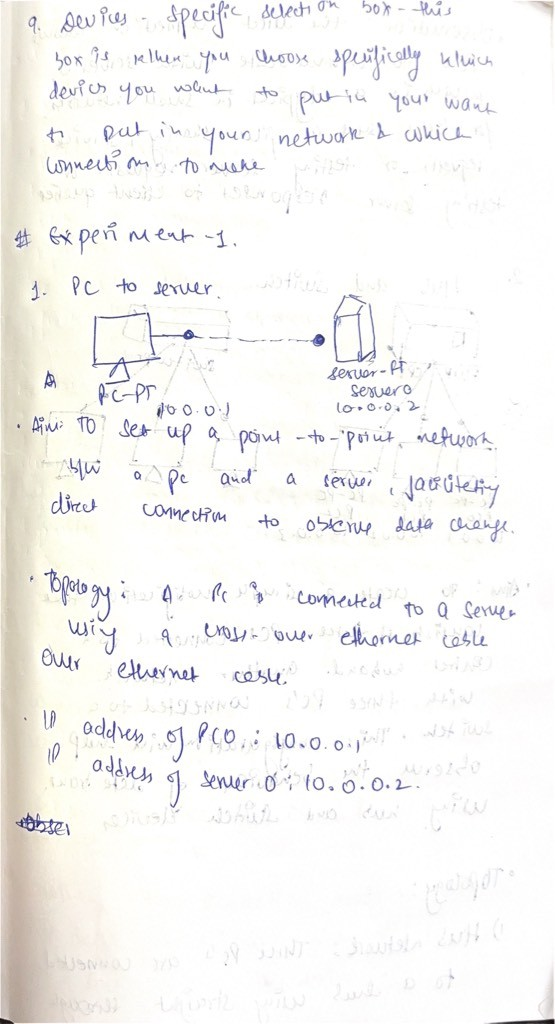 9. Devices - Specific selection box - this
box is when you choose specifically which
devices you want to put in your want
to put in your network & which
connections to make
# Experiment -1.
1. PC to server.
PC-PT
10.0.0.1
server-PT
server0
10.0.0.2
• Aim: To set up a point -to- point network
b/w a pc and a server,
direct connection to observe data change.
• Topology: A Pc is connected to a server
using a cross-over ethernet cable
over ethernet cable.
. IP address of PC0 : 10.0.0.1
IP address of server 0 : 10.0.0.2.